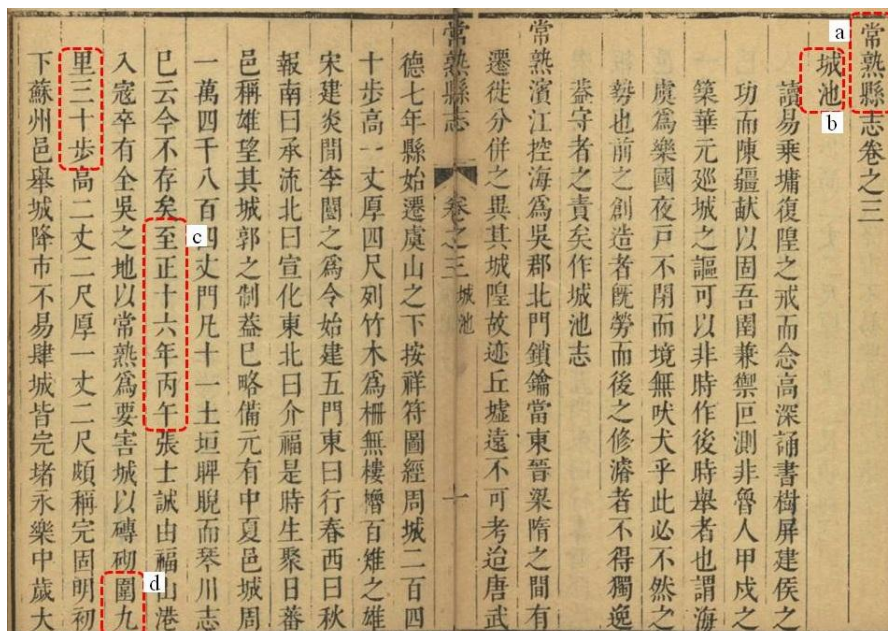 a
常熟縣志卷之三
城池
b
讀易乗墉復隍之戒而念高深誦書樹屏建侯之
功而陳疆献以固吾圉兼禦叵測非魯人甲戍之
築華元廵城之謳可以非時作後時舉者也謂海
虞爲樂國夜戸不閉而境無吠犬乎此必不然之
勢也前之創造者旣勞而後之修濬者不得獨逸
葢守者之責矣作城池志
常熟濱江控海爲吳郡北門鎖鑰當東晉梁隋之間有
遷徙分併之異其城隍故迹丘墟遠不可考迨唐武
常熟縣志 卷之三 城池 一
德七年縣始遷虞山之下按祥符圖經周城二百四
十歩高一丈厚四尺列竹木爲柵無樓櫓百雉之雄
宋建炎間李闓之爲令始建五門東曰行春西曰秋
報南曰承流北曰宣化東北曰介福是時生聚日蕃
邑稱雄望其城郭之制葢巳略備元有中夏邑城周
一萬四千八百四丈門凡十一土垣睥睨而琴川志
c
巳云今不存矣至正十六年丙午張士誠由福山港
入寇卒有全吳之地以常熟爲要害城以磚砌圍九
d
里三十歩高二丈二尺厚一丈二尺頗稱完固明初
下蘇州邑舉城降市不易肆城皆完堵永樂中歲大